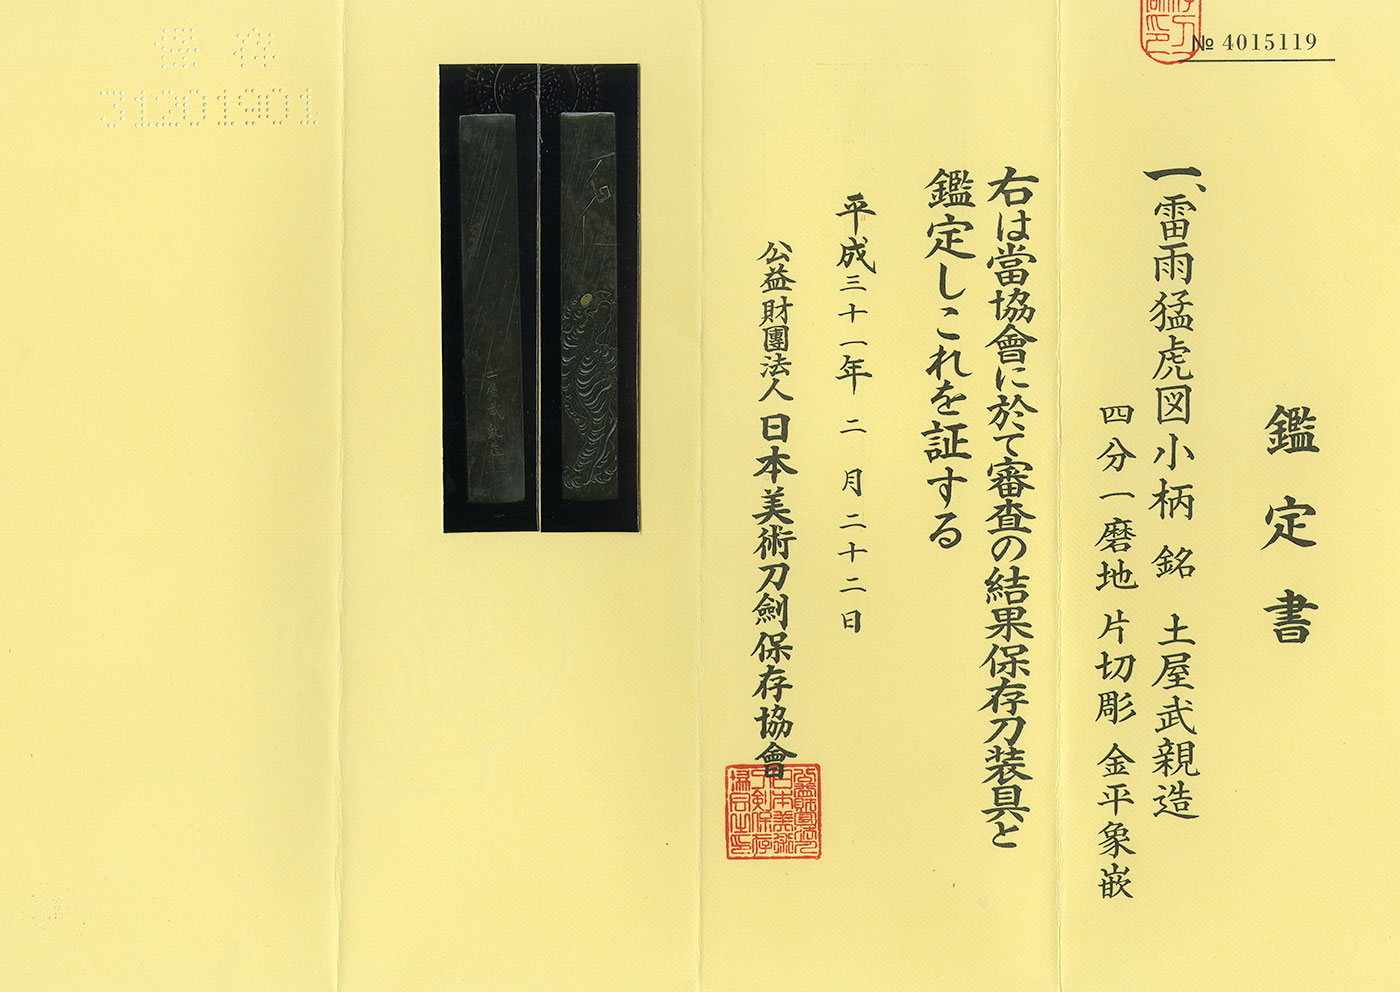 № 4015119
鑑定書
一、雷雨猛虎図小柄 銘 土屋武親造
四分一磨地 片切彫 金平象嵌
右は當協會に於て審査の結果保存刀装具と
鑑定しこれを証する
平成三十一年 二月二十二日
公益財團法人 日本美術刀劍保存協會
保存
31201901